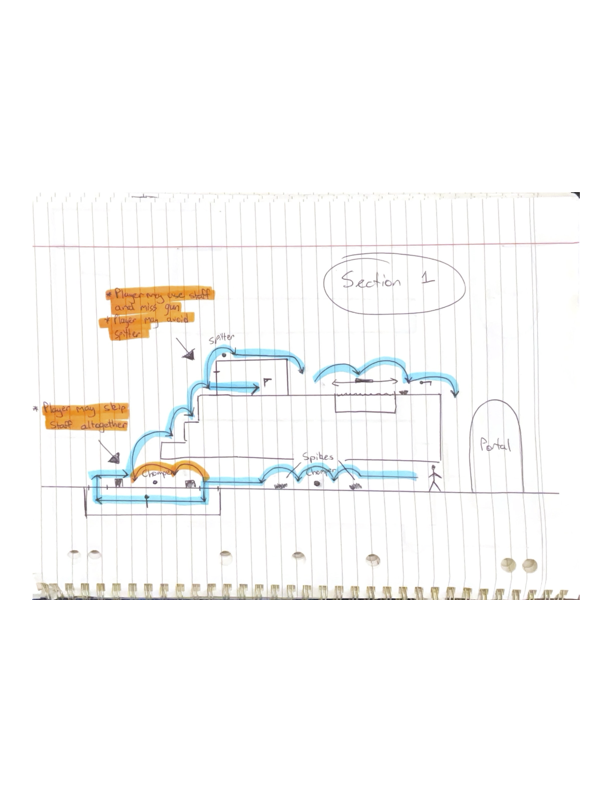 Section 1
* Player may use staff
and miss gun
* Player may avoid
spitter
Spitter
* Player may skip
Staff altogether
Chomper
Spikes
Chomper
Portal